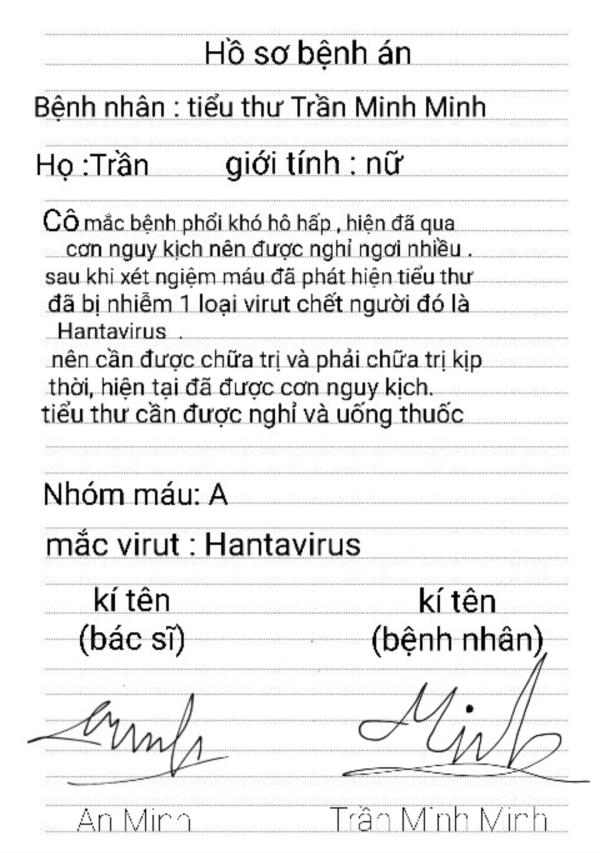 Hồ sơ bệnh án
Bệnh nhân : tiểu thư Trần Minh Minh
Họ :Trần giới tính : nữ
Cô mắc bệnh phổi khó hô hấp , hiện đã qua
cơn nguy kịch nên được nghỉ ngơi nhiều .
sau khi xét ngiệm máu đã phát hiện tiểu thư
đã bị nhiễm 1 loại virut chết người đó là
Hantavirus .
nên cần được chữa trị và phải chữa trị kịp
thời, hiện tại đã được cơn nguy kịch.
tiểu thư cần được nghỉ và uống thuốc
Nhóm máu: A
mắc virut : Hantavirus
kí tên kí tên
(bác sĩ) (bệnh nhân)
Minh
An Minh Trần Minh Minh